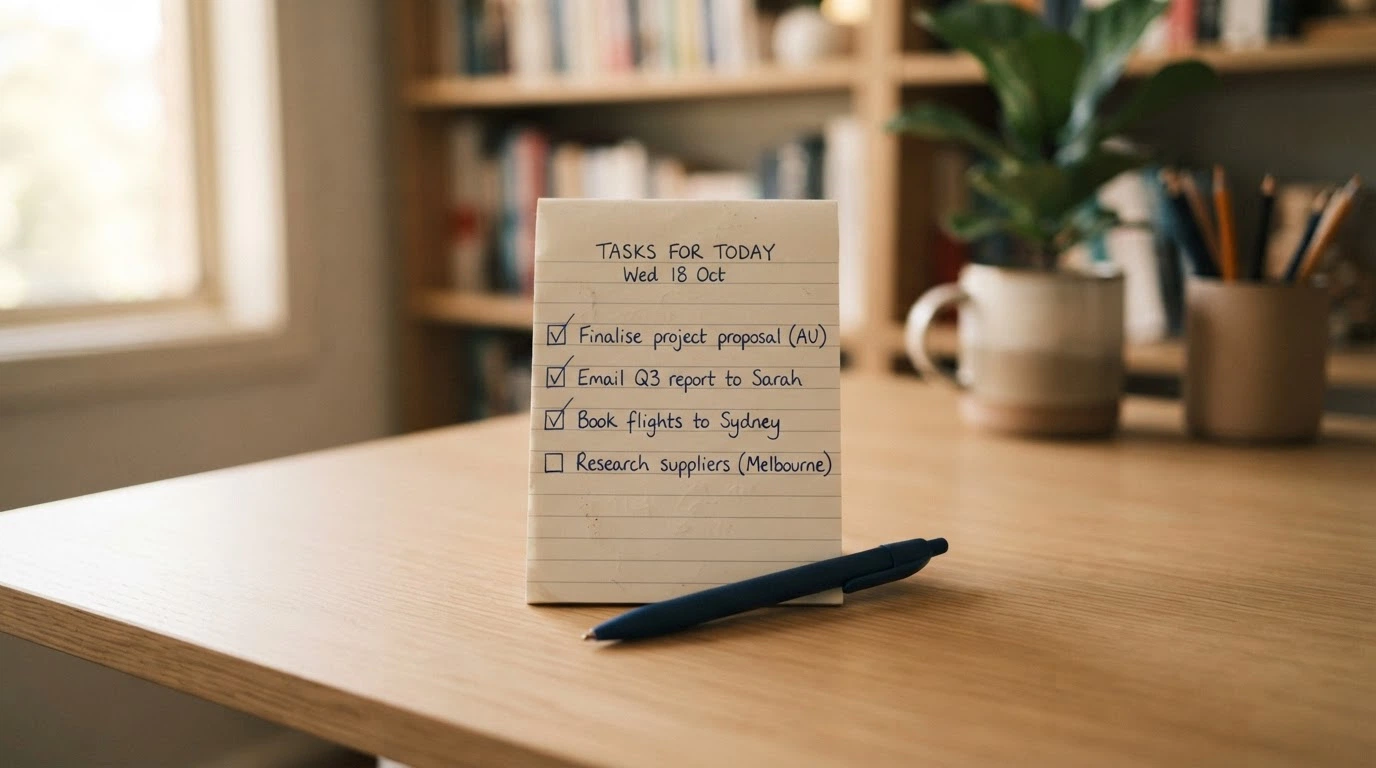 TASKS FOR TODAY
Wed 18 Oct
Finalise project proposal (AU)
Email Q3 report to Sarah
Book flights to Sydney
Research suppliers (Melbourne)